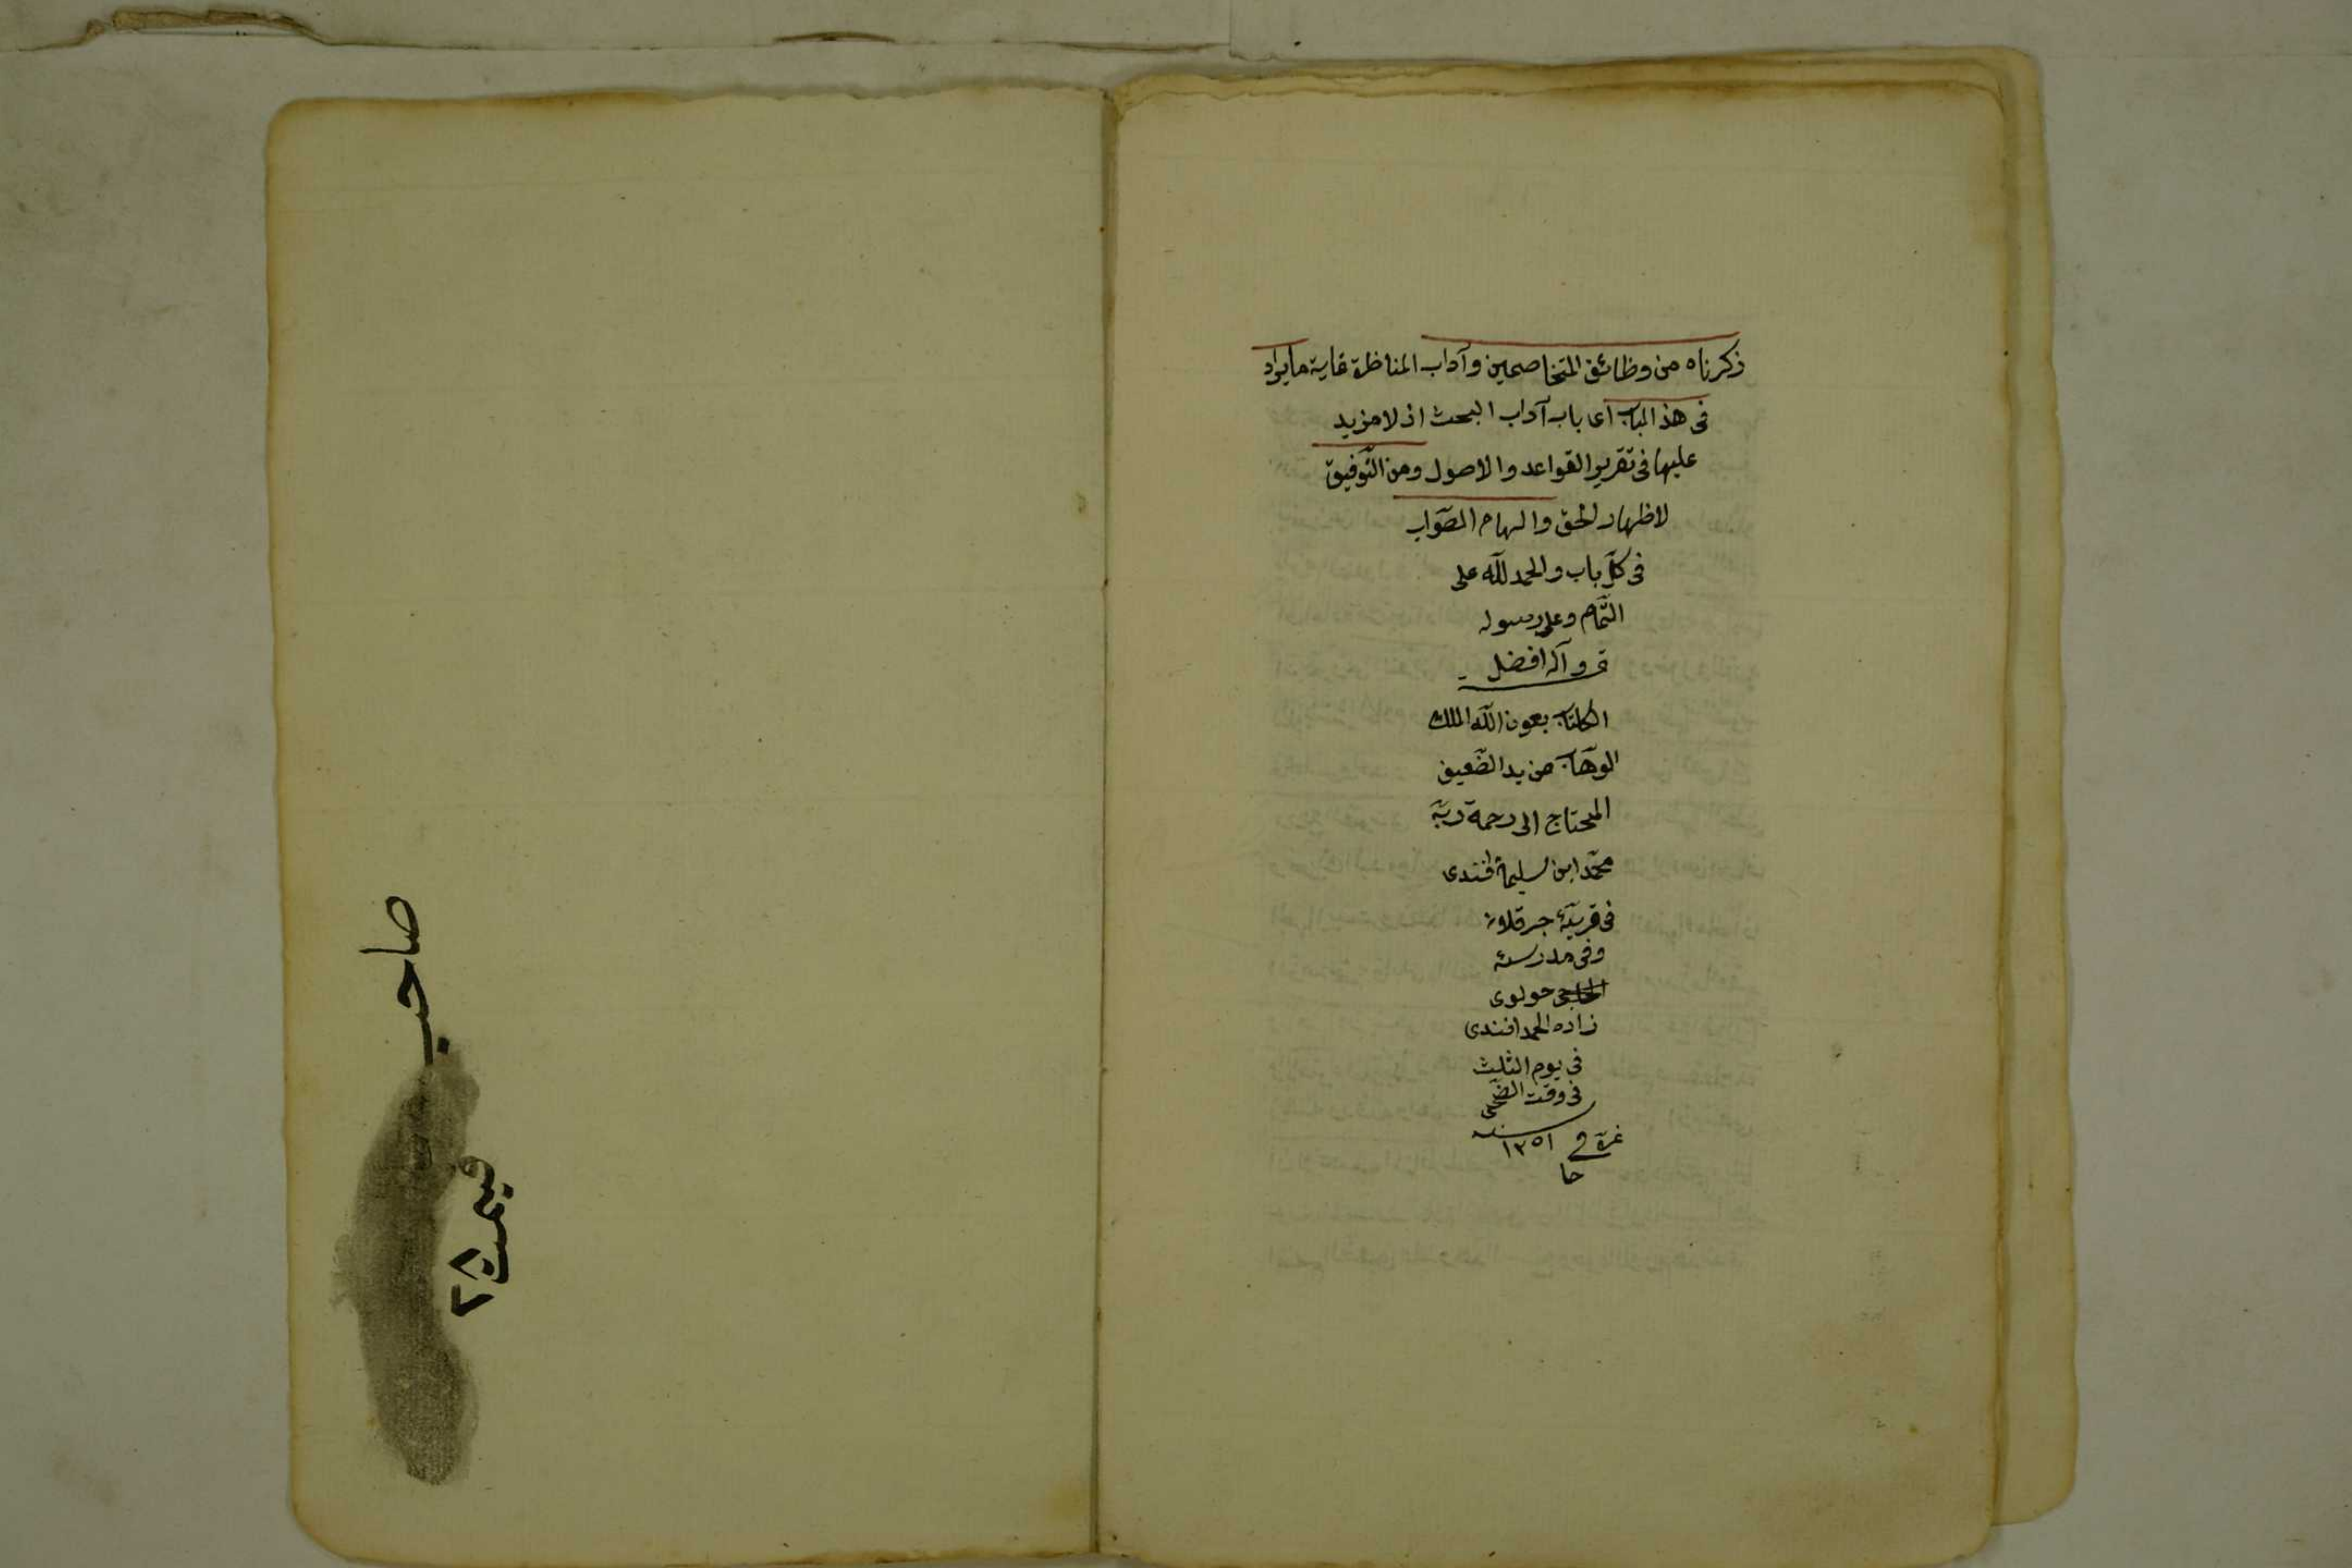 ذكرناه من وظائف المتخاصمين وآداب المناظرة غاية ما يراد
فى هذ الباب اى باب آداب البحث اذ لا مزيد
عليها فى تقرير القواعد والاصول ومن التّوفيق
لاظهار الحقّ والهام الصّواب
فى كلّ باب والحمد للّه على
التّمام وعلى رسوله
وآله افضل
الكتاب بعون اللّه الملك
الوهّاب من يد الضّعيف
المحتاج الى رحمة ربّه
محمّد ابن سليمان افندى
فى قريّة
وفى مدرسة
مولوى
زاده احمد افندى
فى يوم الثلث
فى وقت الضّحى
غرة سنه ١٢٥١
صاحب
قيمت
٢٨